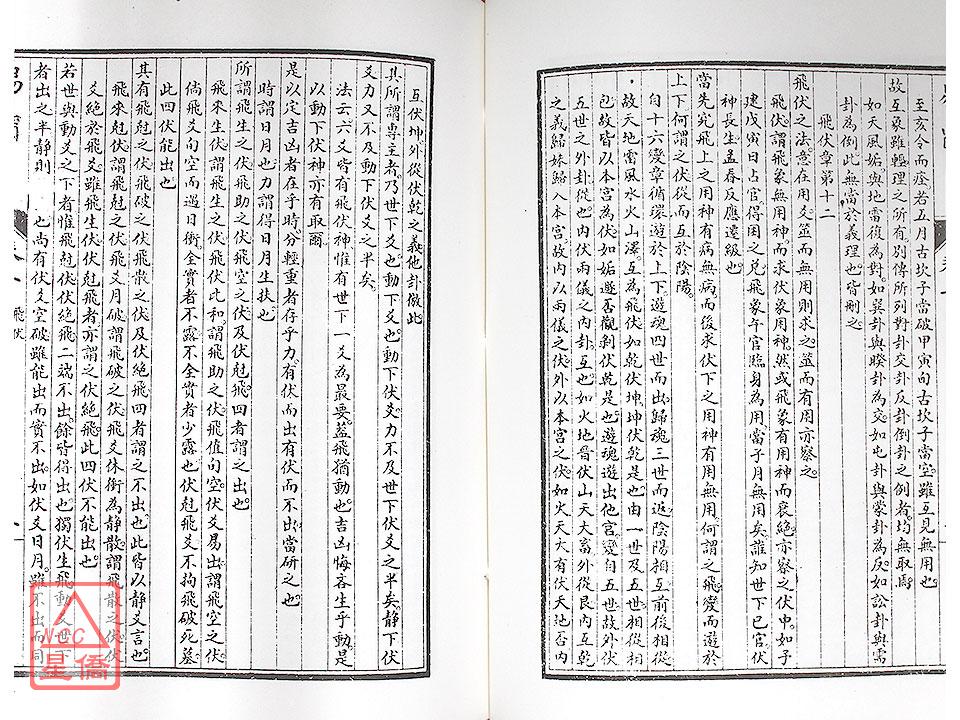 至亥令而痊若五月占坎子當破甲寅旬占坎子當空雖互見無用也
故互象雖輕理之所有別傳所列對卦交卦反卦倒卦之例者均無取焉
如天風姤與地雷復為對如巽卦與睽卦為交如屯卦與蒙卦為反如訟卦與需
卦為倒此無當於義理也皆刪之
飛伏章第十二
飛伏之法意在用爻並而無用則求之並而有用亦察之
飛伏謂飛象無用神而求伏象用神然或飛象有用神而衰絕亦察之伏中如子
建戊寅日占官得困之兌飛象午官臨身為用當子月無用矣誰知世下巳官伏
神長生孟春反應遠級也
當先究飛上之用神有病無病而後求伏下之用神有用無用何謂之飛變而遊於
上下何謂之伏從而互於陰陽
自十六變章循環遊於上下遊魂四世而出歸魂三世而返陰陽相互前後相從
故天地雷風水火山澤互為飛伏如乾伏坤坤伏乾是也由一世及五世相從相
也故皆以本宮為伏如姤遯否觀剝伏乾是也遊魂遊出他宮變自五世故外伏
五世之外卦從也內伏兩儀之內卦互也如火地晉伏山天大畜外從艮內互乾
之義歸魂歸入本宮故內以兩儀之伏外以本宮之伏如火天大有伏天地否內
互伏坤外從伏乾之義他卦倣此
具所謂專主者乃世下爻也動下爻也動下伏爻力不及世下伏爻之半矣靜下伏
爻力又不及動下伏爻之半矣
法云六爻皆有飛伏神惟有世下一爻為最要葢飛猶動也吉凶悔吝生乎動是
以動下伏神亦有取爾
是以定吉凶者在乎時分輕重者存乎力有伏而出有伏而不出當研之也
時謂日月也力謂得日月生扶也
所謂飛生之伏飛助之伏飛空之伏及伏尅飛四者謂之出也
飛來生伏謂飛生之伏飛伏比和謂飛助之伏飛值旬空伏爻易出謂飛空之伏
倘飛爻旬空而遇日衝全實者不露不全實者少露也伏尅飛爻不拘飛破死墓
此四伏能出也
其有飛尅之伏飛破之伏飛散之伏及伏絕飛四者謂之不出也此皆以靜爻言也
飛來尅伏謂飛尅之伏飛爻月破謂飛破之伏飛爻休衝為靜散謂飛散之伏伏
爻絕於飛爻雖飛生伏伏尅飛者亦謂之伏絕飛此四伏不能出也
若世與動爻之下者惟飛尅伏伏絕飛二端不出餘皆得出也獨伏生飛動又世下
者出之半靜則 也尚有伏爻空破雖能出而實不出如伏爻日月雖不出而同
飛伏
NCC
星僑